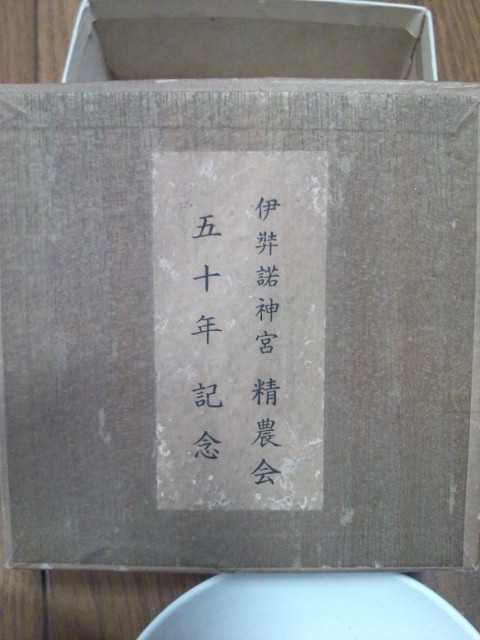 伊弉諾神宮 精農会
五十年 記念